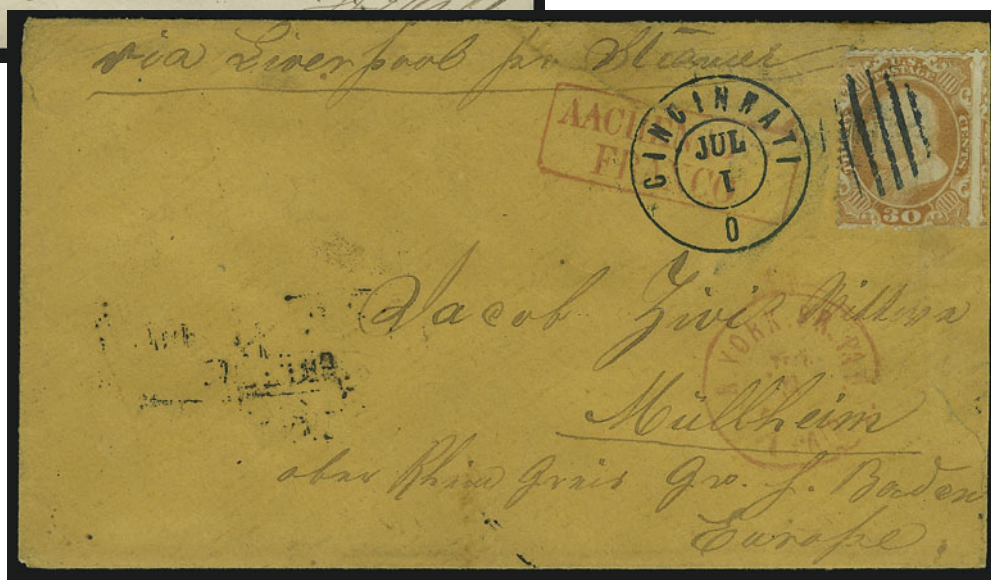 via Liverpool per Steamer
AACHEN
FRANCO
CINCINNATI
JUL
1
O
U.S. POSTAGE
CENTS
30
Jacob Zivi Wittwe
YORK AM. PKT.
PAID
Müllheim
ober Rhein Kreis Gr. H. Baden
Europe